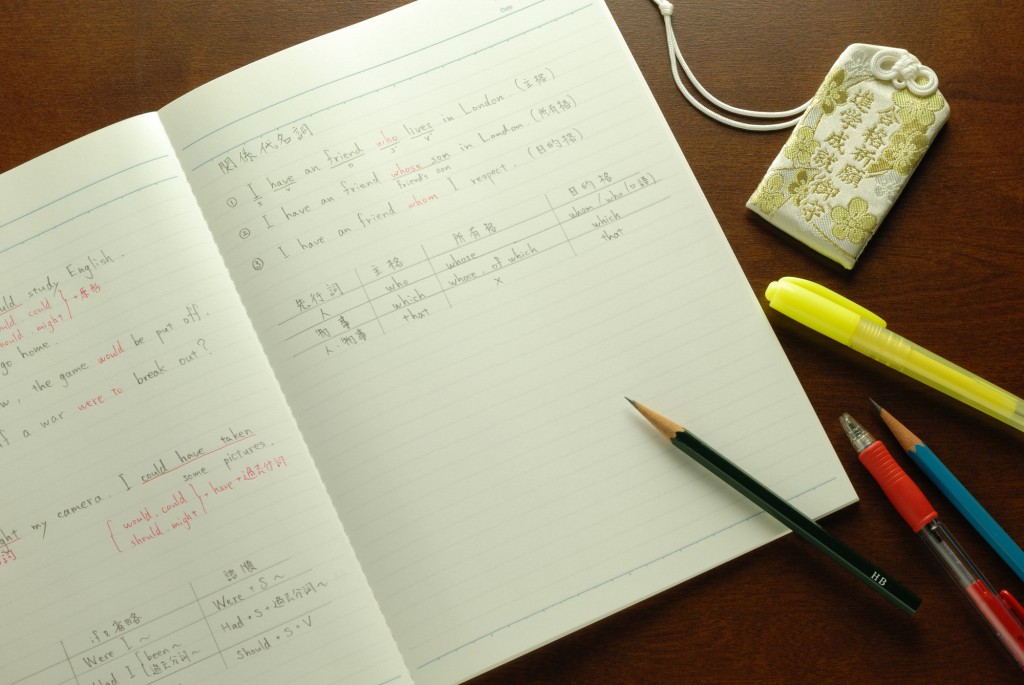 ould study English.
ould could
should might } + 原形
go home.
w, the game would be put off.
If a war were to break out?
ght my camera. I could have taken
some pictures.
{ would, could
should, might } + have + 過去分詞
if の省略
Were I ~
Had I { been ~
過去分詞 ~
Were + S ~
Had + S + 過去分詞 ~
Should + S + V
関係代名詞
① I have an friend who lives in London (主格)
S V O S' V'
② I have an friend whose son in London (所有格)
friend's son
③ I have an friend whom I respect. (目的格)
先行詞 主格 所有格 目的格
人 who whose whom / who (口語)
物 事 which whose, of which which
人・物事 that × that
合格祈願
進学成就御守
HB